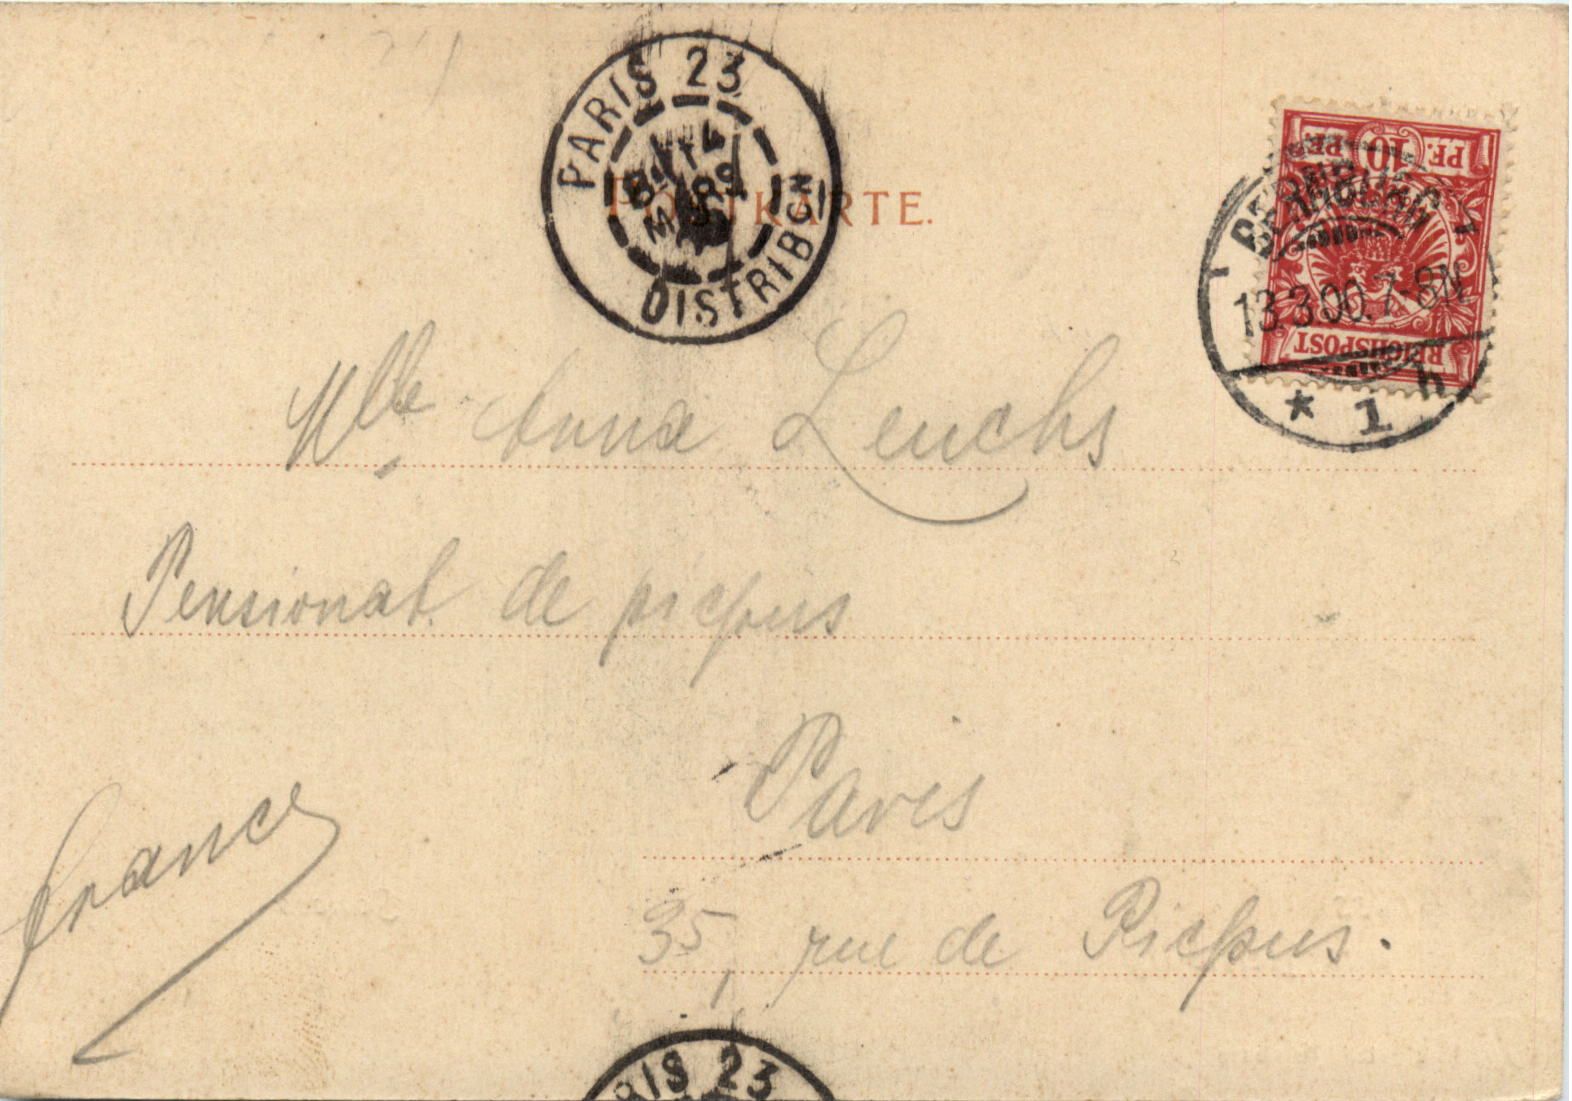 PARIS 23
DISTRIBON
POSTKARTE.
PF. 10 PF.
REICHSPOST
13.3.00.7-8N
* 1 h
Mlle Anna Leuchs
Pensionat de picpus
Paris
France
35, rue de Picpus.
RIS 23